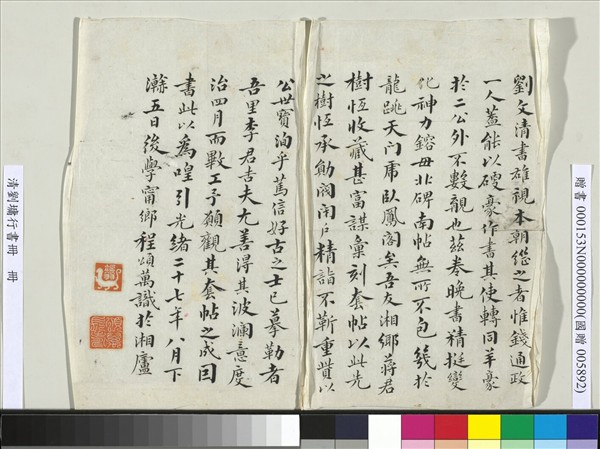 劉文清書雄視本朝繼之者惟錢通政
一人蓋能以硬豪作書其使轉同羊豪
於二公外不數覯也茲卷晚書精挺變
化神力鎔毋北碑南帖無所不包幾於
龍跳天門虎臥鳳閣矣吾友湘鄉蔣君
樹恆收藏甚富謀彙刻套帖以此先
之樹恆承勛閥閉戶精詣不靳重貲以
公世寶洵乎篤信好古之士已摹勒者
吾里李君吉夫尤善得其波瀾意度
治四月而斁工予願觀其套帖之成因
書此以為喤引光緒二十七年八月下
澣五日後學甯鄉程頌萬識於湘廬
贈書 000153N000000000(國贈 005892)
清劉墉行書冊 冊